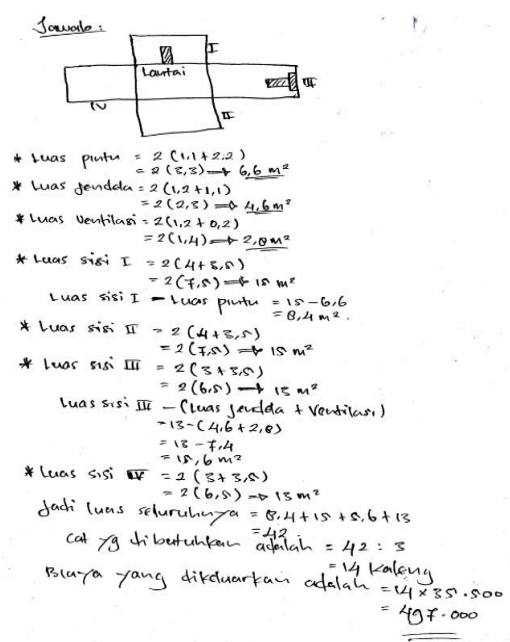 Jawab :
I
Lantai
III
IV
II
* Luas pintu = 2 (1,1 + 2,2)
= 2 (3,3) → 6,6 m²
* Luas jendela = 2 (1,2 + 1,1)
= 2 (2,3) → 4,6 m²
* Luas Ventilasi = 2 (1,2 + 0,2)
= 2 (1,4) → 2,8 m²
* Luas sisi I = 2 (4 + 3,5)
= 2 (7,5) → 15 m²
Luas sisi I - Luas pintu = 15 - 6,6
= 8,4 m².
* Luas sisi II = 2 (4 + 3,5)
= 2 (7,5) → 15 m²
* Luas sisi III = 2 (3 + 3,5)
= 2 (6,5) → 13 m²
Luas sisi III - (Luas jendela + Ventilasi)
= 13 - (4,6 + 2,8)
= 13 - 7,4
= 15,6 m²
* Luas sisi IV = 2 (3 + 3,5)
= 2 (6,5) → 13 m²
Jadi luas seluruhnya = 8,4 + 15 + 5,6 + 13
= 42.
Cat yg dibutuhkan adalah = 42 : 3
= 14 kaleng
Biaya yang dikeluarkan adalah = 14 x 35.500
= 497.000